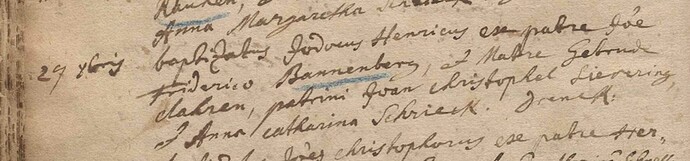 Anna Margaretha
29 xbris baptizatus Jodocus Henricus ex patre Joe
Friderico Bannenberg, et Matre Getrude
Clahren, patrini Joan Christophel Sievering,
et Anna Catharina Schrieck.
Joes Christophorus ex patre Her-